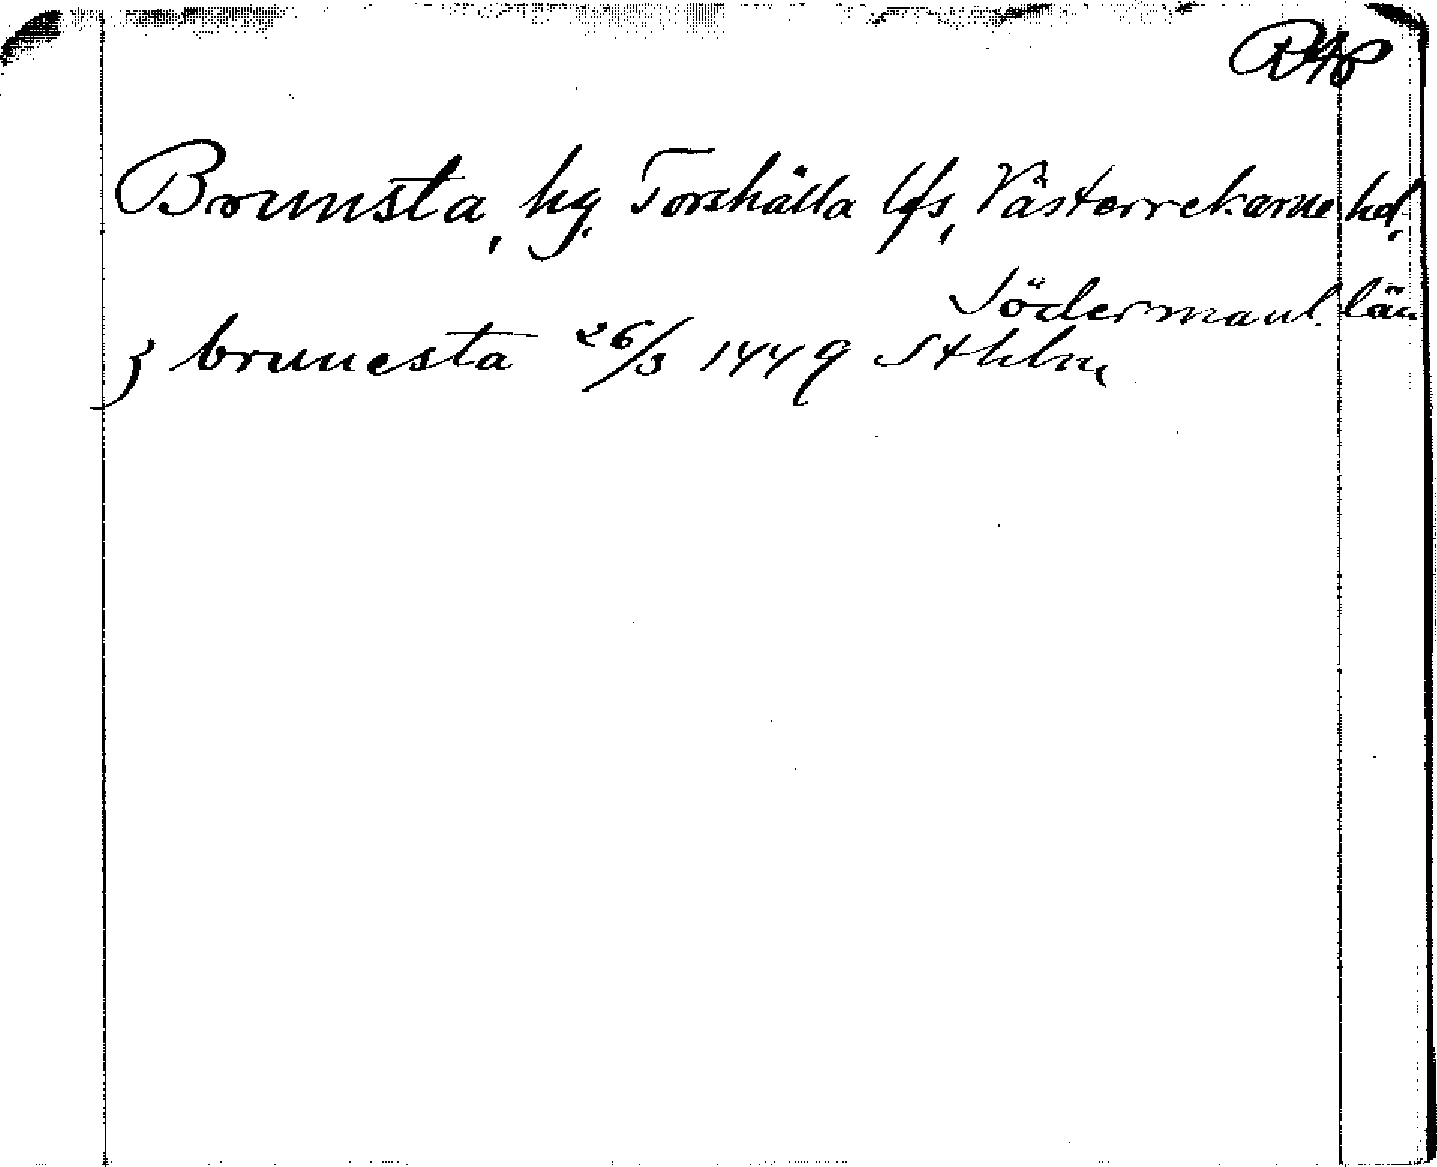 Brunnsta, hg, Torshälla lfs, Västerrekarne hd,
Södermanl. län
ȝ brunesta 26/3 1449 Sthlm,